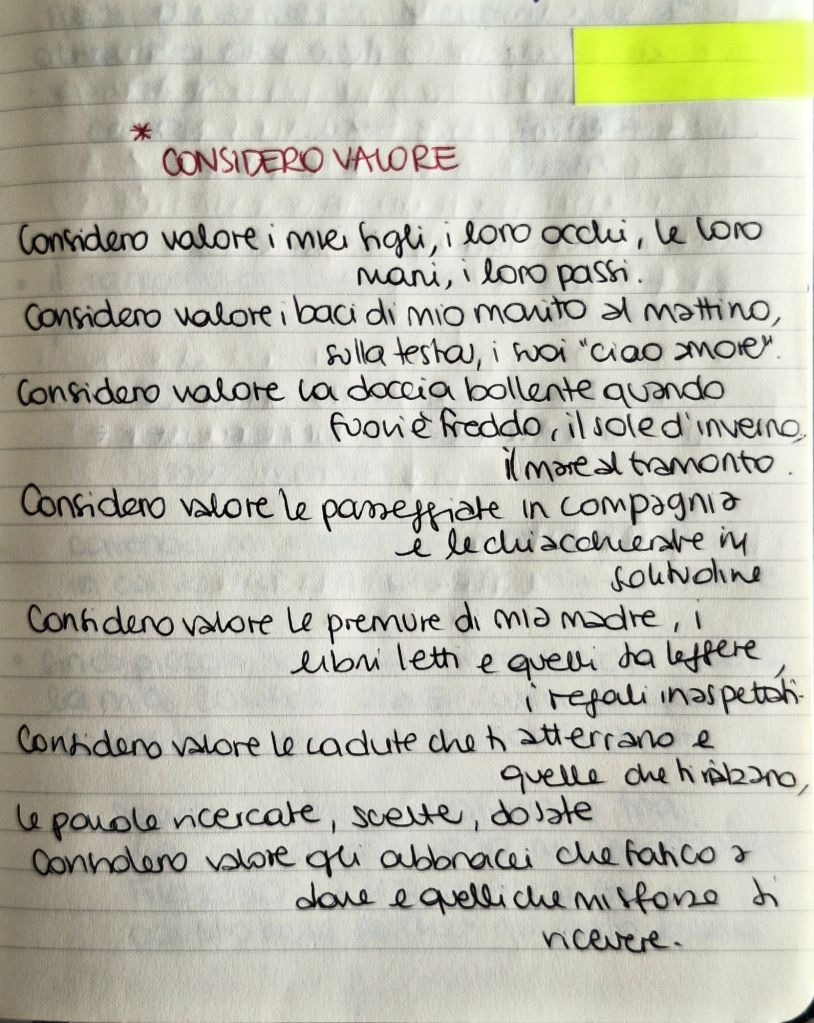 *
CONSIDERO VALORE
Considero valore i miei figli, i loro occhi, le loro
mani, i loro passi.
Considero valore i baci di mio marito al mattino,
sulla testa, i suoi "ciao amore".
Considero valore la doccia bollente quando
fuori è freddo, il sole d'inverno,
il mare al tramonto.
Considero valore le passeggiate in compagnia
e le chiacchierate in
solitudine
Considero valore le premure di mia madre, i
libri letti e quelli da leggere,
i regali inaspettati.
Considero valore le cadute che ti atterrano e
quelle che ti rialzano,
le parole ricercate, scelte, dosate
Considero valore gli abbracci che fatico a
dare e quelli che mi sforzo di
ricevere.